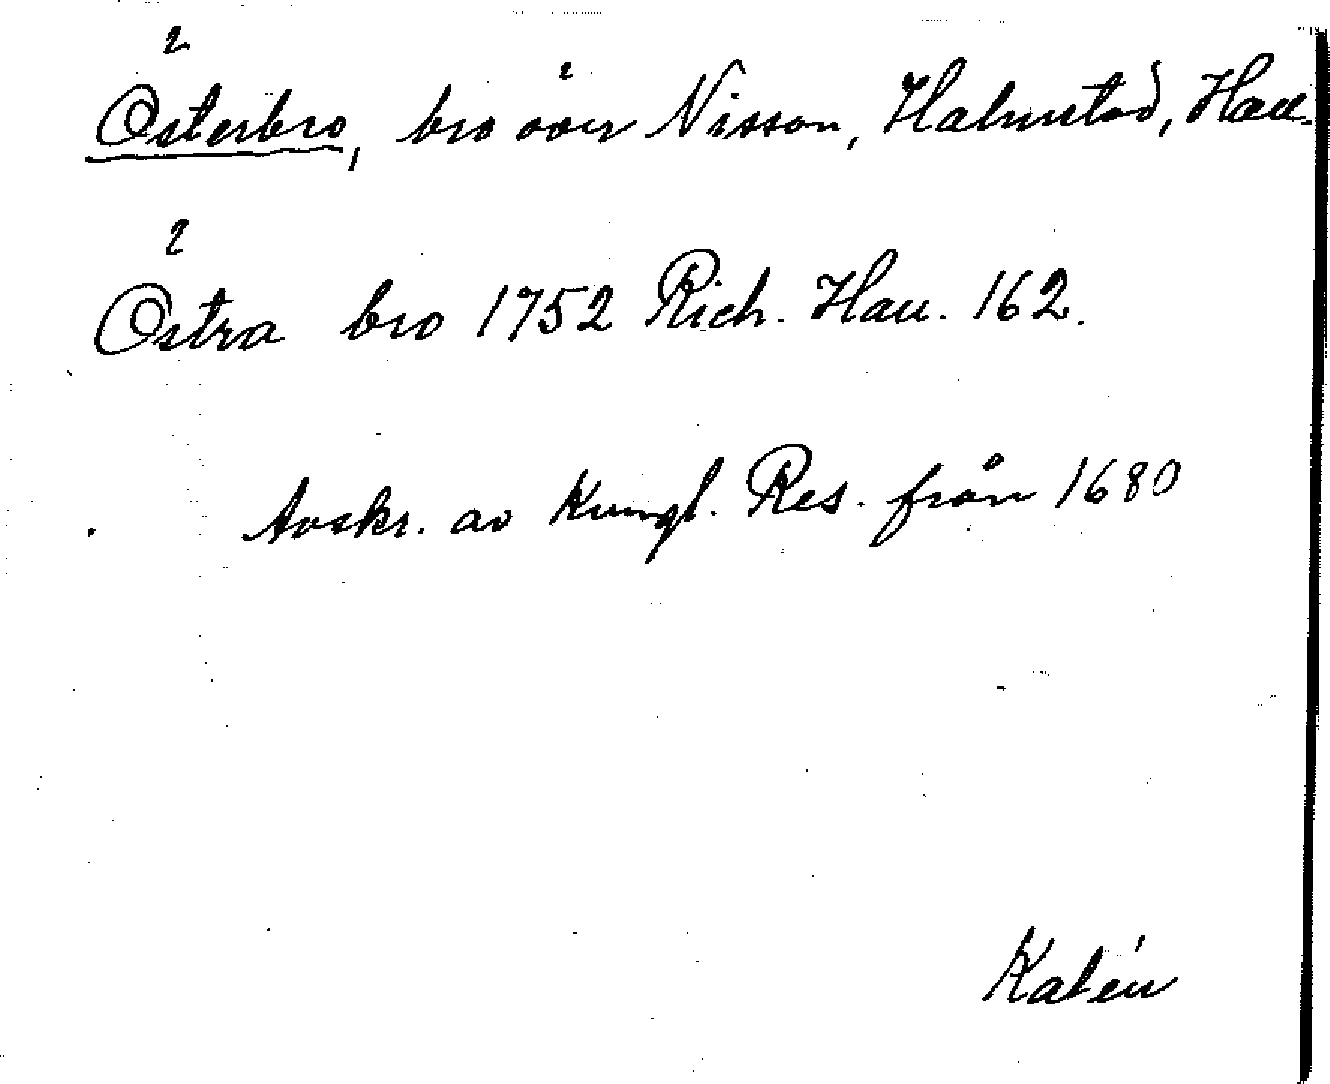 Österbro, bro över Nissan, Halmstad, Hall.
Östra bro 1752 Rich. Hall. 162.
Avskr. av Kungl. Res. från 1680
Kalén